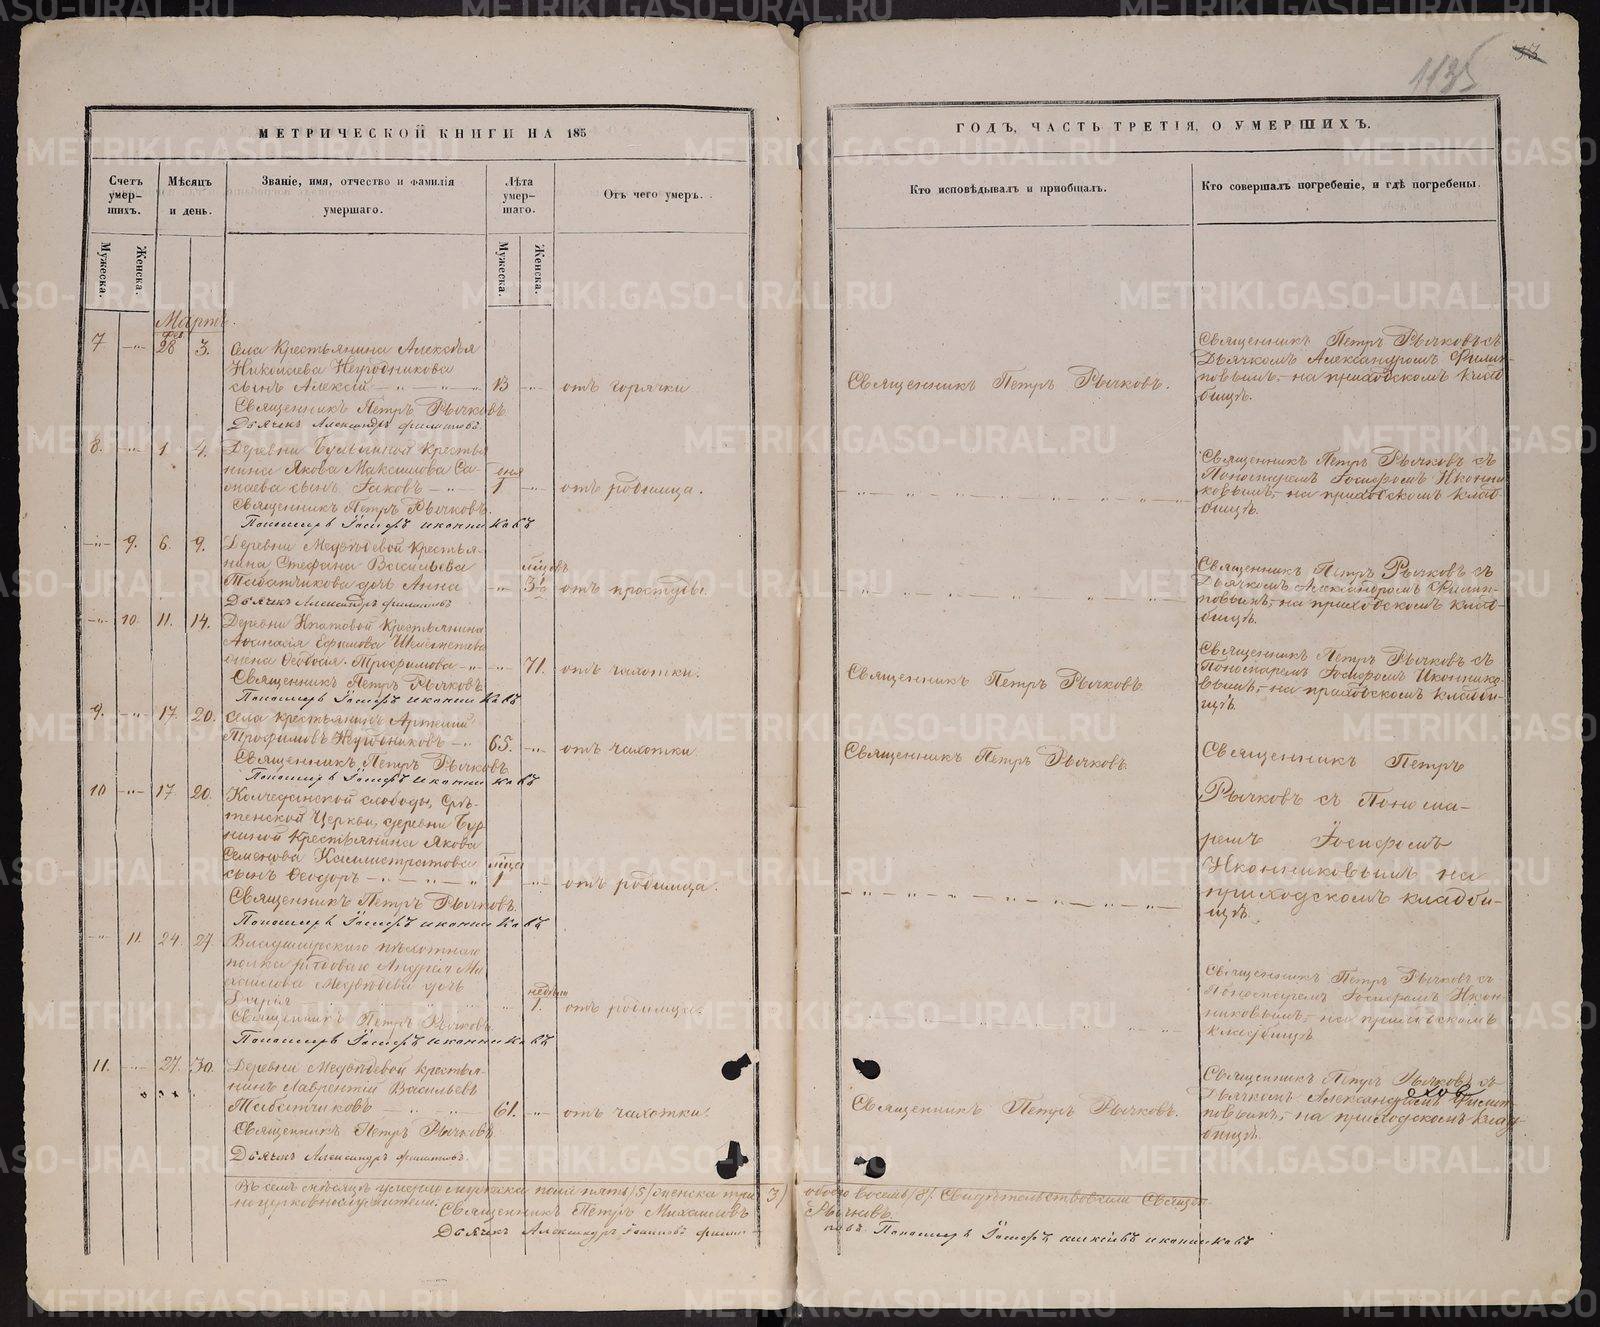 1135
13
МЕТРИЧЕСКОЙ КНИГИ НА 185
ГОДЪ, ЧАСТЬ ТРЕТІЯ, О УМЕРШИХЪ.
Счетъ умер-шихъ.
Мѣсяцъ и день.
Званіе, имя, отчество и фамилія умершаго.
Лѣта умер-шаго.
Отъ чего умеръ.
Кто исповѣдывалъ и приобщалъ.
Кто совершалъ погребеніе, и гдѣ погребены.
Мужеска.
Женска.
Мужеска.
Женска.
Мартъ.
7 28 3. Села Крестьянина Алексѣя
Николаева Неугодникова
сынъ Алексій 13 отъ горячки
Священникъ Петръ Рычковъ.
Священникъ Петръ Рычковъ
Дьячекъ Александръ Филиповъ.
Священникъ Петръ Рычковъ съ
Дьячкомъ Александромъ Филип-
повымъ, на приходскомъ клад-
бищѣ.
8. 1. 4. Деревни Крестья-
нина Якова Максимова
сынъ Іаковъ 1 отъ родимца.
Священникъ Петръ Рычковъ.
Пономарь Іосифъ Иконниковъ
Священникъ Петръ Рычковъ съ
Пономаремъ Іосифомъ Иконни-
ковымъ, на приходскомъ клад-
бищѣ.
9. 6. 9. Деревни Медвѣдевой Крестья-
нина Стефана Васильева
Табатчикова дочь Анна отъ простуды.
Дьячекъ Александръ Филиповъ
Священникъ Петръ Рычковъ съ
Дьячкомъ Александромъ Филип-
повымъ, на приходскомъ клад-
бищѣ.
10. 11. 14. Деревни Ипатовой Крестьянина
Ефимова
жена Ѳеодосія Трофимова 71. отъ чахотки.
Священникъ Петръ Рычковъ
Священникъ Петръ Рычковъ
Пономарь Іосифъ Иконниковъ
Священникъ Петръ Рычковъ съ
Пономаремъ Іосифомъ Иконнико-
вымъ, на приходскомъ кладби-
щѣ.
9. 17. 20. Села крестьянинъ Артемій
Трофимовъ Неугодниковъ 65. отъ чахотки.
Священникъ Петръ Рычковъ.
Священникъ Петръ Рычковъ
Пономарь Іосифъ Иконниковъ
Священникъ Петръ
Рычковъ съ Понома-
ремъ Іосифомъ
Иконниковымъ на
приходскомъ кладби-
щѣ.
10 17. 20. Колчеданской слободы, Срѣ-
тенской Церкви, деревни Бур-
ниной Крестьянина Якова
Семенова Каллистратова
сынъ Ѳеодоръ 1 отъ родимца.
Священникъ Петръ Рычковъ.
Пономарь Іосифъ Иконниковъ
11. 24. 27. Владимирскаго пѣхотнаго
полка рядоваго Андрея Ми-
хаилова Медвѣдева дочь
Дарія 1. отъ родимца.
недѣли
Священникъ Петръ Рычковъ.
Пономарь Іосифъ Иконниковъ
Священникъ Петръ Рычковъ съ
Пономаремъ Іосифомъ Икон-
никовымъ, на приходскомъ
кладбищѣ
11. 27. 30. Деревни Медвѣдевой крестья-
нинъ Лаврентій Васильевъ
Табатчиковъ 61. отъ чахотки.
Священникъ Петръ Рычковъ.
Священникъ Петръ Рычковъ
Дьячекъ Александръ Филиповъ.
Священникъ Петръ Рычковъ съ
Дьячкомъ Александромъ Филип-
повымъ, на приходскомъ клад-
бищѣ.
Въ семъ мѣсяцѣ умерло мужеска пола пять /5/ женска три /3/ обоего восемь /8/. Свидѣтельствовали Священ-
Священникъ Петръ Михаиловъ Рычковъ.
Дьячекъ Александръ
Пономарь Іосифъ Алексѣевъ Иконниковъ
METRIKI.GASO-URAL.RU